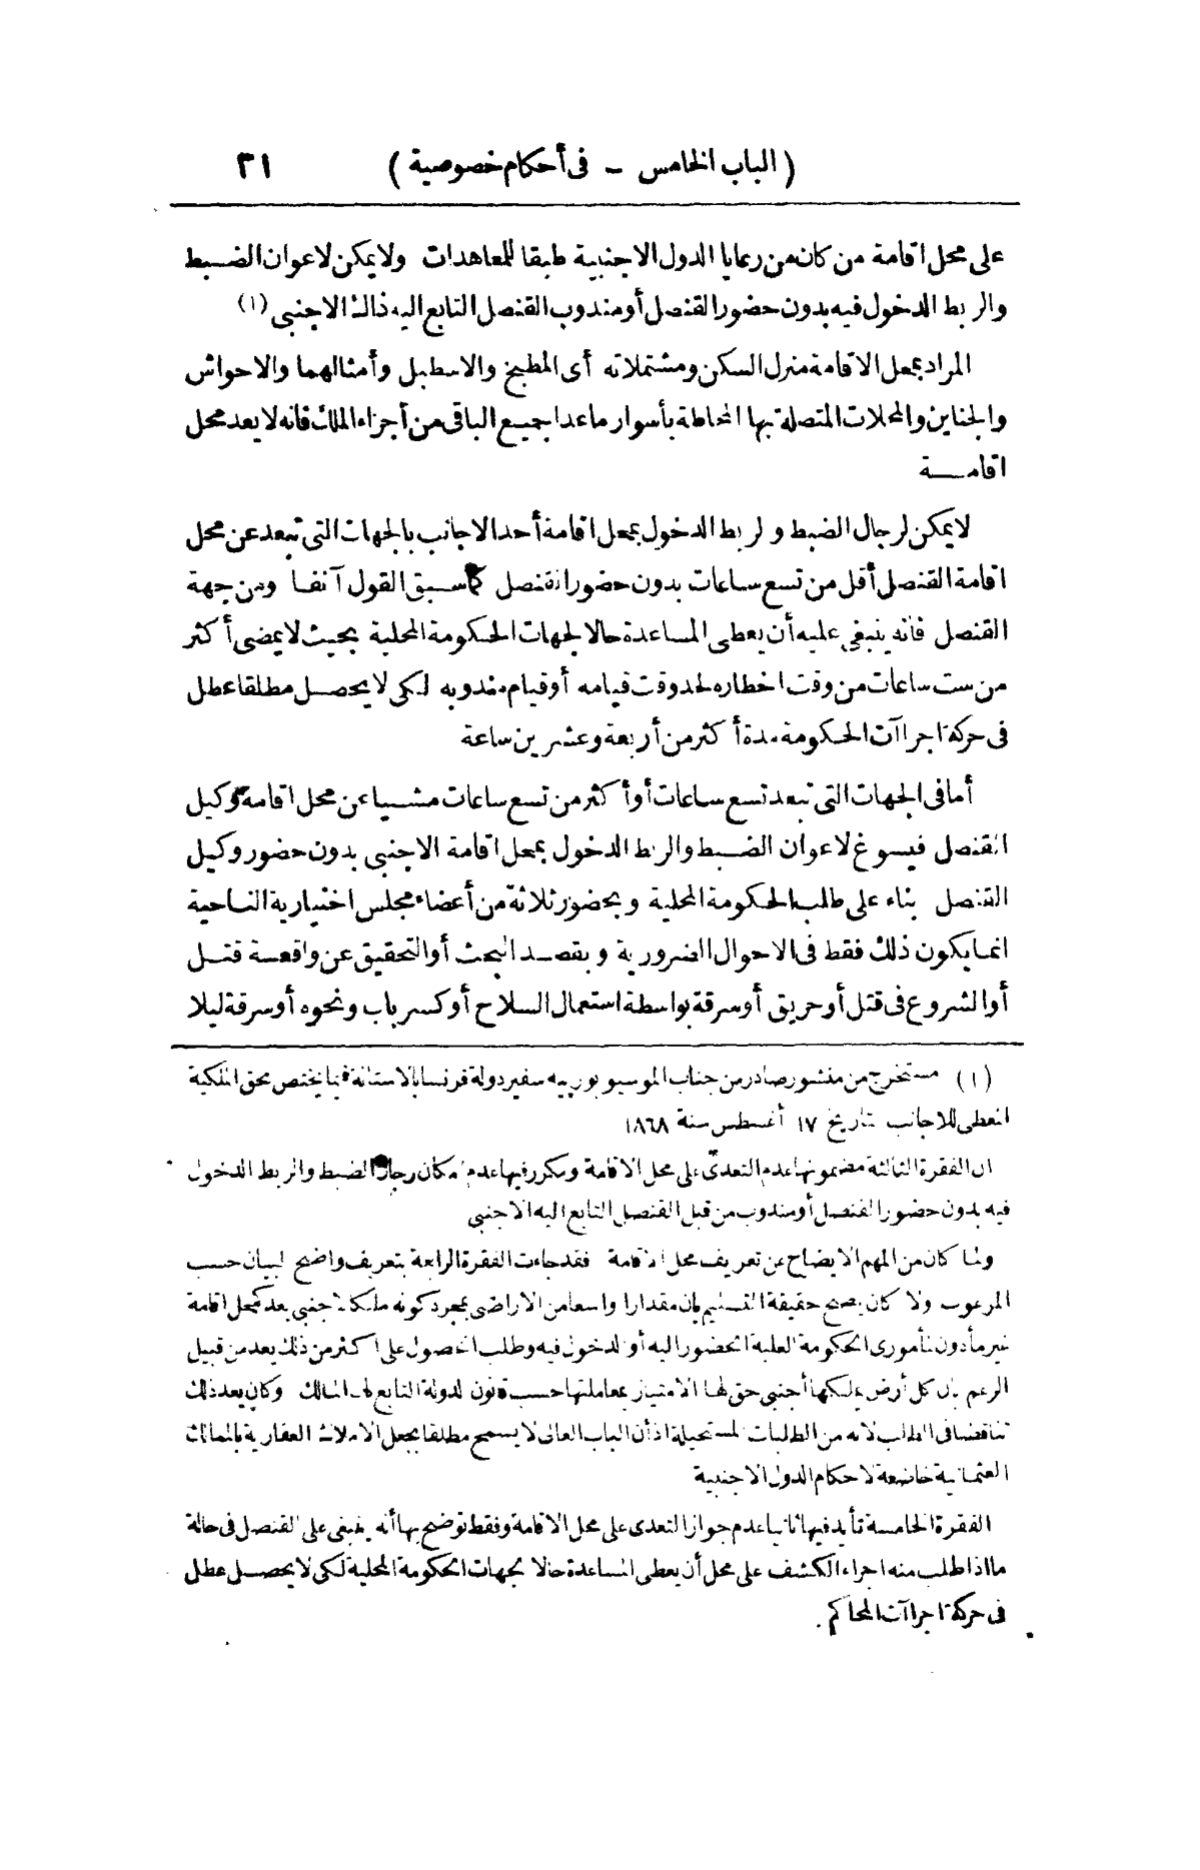 ( الباب الخامس – فى أحكام خصوصية ) ٣١
على محل اقامة من كان من رعايا الدول الاجنبية طبقا للمعاهدات ولا يمكن لاعوان الضبط
والربط الدخول فيه بدون حضور القنصل أو مندوب القنصل التابع اليه ذلك الاجنبى (١)
المراد بمحل الاقامة منزل السكن ومشتملاته أى المطبخ والاسطبل وأمثالهما والاحواش
والجناين والمحلات المتصلة بها المحاطة بأسوار ماعدا جميع الباقى من أجزاء الملك فانه لا يعد محل
اقامة
لا يمكن لرجال الضبط والربط الدخول بمحل اقامة أحد الاجانب بالجهات التى تبعد عن محل
اقامة القنصل أقل من تسع ساعات بدون حضور القنصل كما سبق القول آنفا ومن جهة
القنصل فانه ينبغى عليه أن يعطى المساعدة حالا لجهات الحكومة المحلية بحيث لا يمضى أكثر
من ست ساعات من وقت اخطاره لحد وقت قيامه أو قيام مندوبه لكى لا يحصل مطلقا عطل
فى حركة اجراآت الحكومة مدة أكثر من أربعة وعشرين ساعة
أما فى الجهات التى تبعد تسع ساعات أو أكثر من تسع ساعات مشيا عن محل اقامة وكيل
القنصل فيسوغ لاعوان الضبط والربط الدخول بمحل اقامة الاجنبى بدون حضور وكيل
القنصل بناء على طلب الحكومة المحلية وبحضور ثلاثة من أعضاء مجلس اختيارية الناحية
انما يكون ذلك فقط فى الاحوال الضرورية وبقصد البحث أو التحقيق عن واقعة قتل
أو الشروع فى قتل أو حريق أو سرقة بواسطة استعمال السلاح أو كسر باب ونحوه أو سرقة ليلا
(١) مستخرج من منشور صادر من جناب الموسيو بورييه سفير دولة فرنسا بالاستانة فيما يختص بحق الملكية
المعطى للاجانب بتاريخ ١٧ أغسطس سنة ١٨٦٨
ان الفقرة الثالثة مضمونها عدم التعدّى على محل الاقامة ومكرر فيها عدم امكان رجال الضبط والربط الدخول
فيه بدون حضور القنصل أو مندوب من قبل القنصل التابع اليه الاجنبى
ولما كان من المهم الايضاح عن تعريف محل الاقامة فقد جاءت الفقرة الرابعة بتعريف واضح لبيان حسب
المرغوب ولا كان يصح حقيقة التسليم بان مقدارا واسعا من الاراضى بمجرد كونه ملكا لاجنبى يعد كمحل اقامة
غير مأذون لمأمورى الحكومة العلية الحضور اليه أو الدخول فيه وطلب الحصول على أكثر من ذلك يعد من قبيل
الزعم بان كل أرض يملكها أجنبى حق لها الامتياز بمعاملتها حسب قانون الدولة التابع لها المالك وكان يعد ذلك
تناقضا فى الطلب لانه من الطلبات المستحيلة اذ أن الباب العالى لا يسمح مطلقا بجعل الاملاك العقارية بالممالك
العثمانية خاضعة لاحكام الدول الاجنبية
الفقرة الخامسة تأيد فيها ثانيا عدم جواز التعدى على محل الاقامة وفقط توضح بها أنه ينبغى على القنصل فى حالة
ما اذا طلب منه اجراء الكشف على محل أن يعطى المساعدة حالا لجهات الحكومة المحلية لكى لا يحصل عطل
فى حركة اجراآت المحاكم .